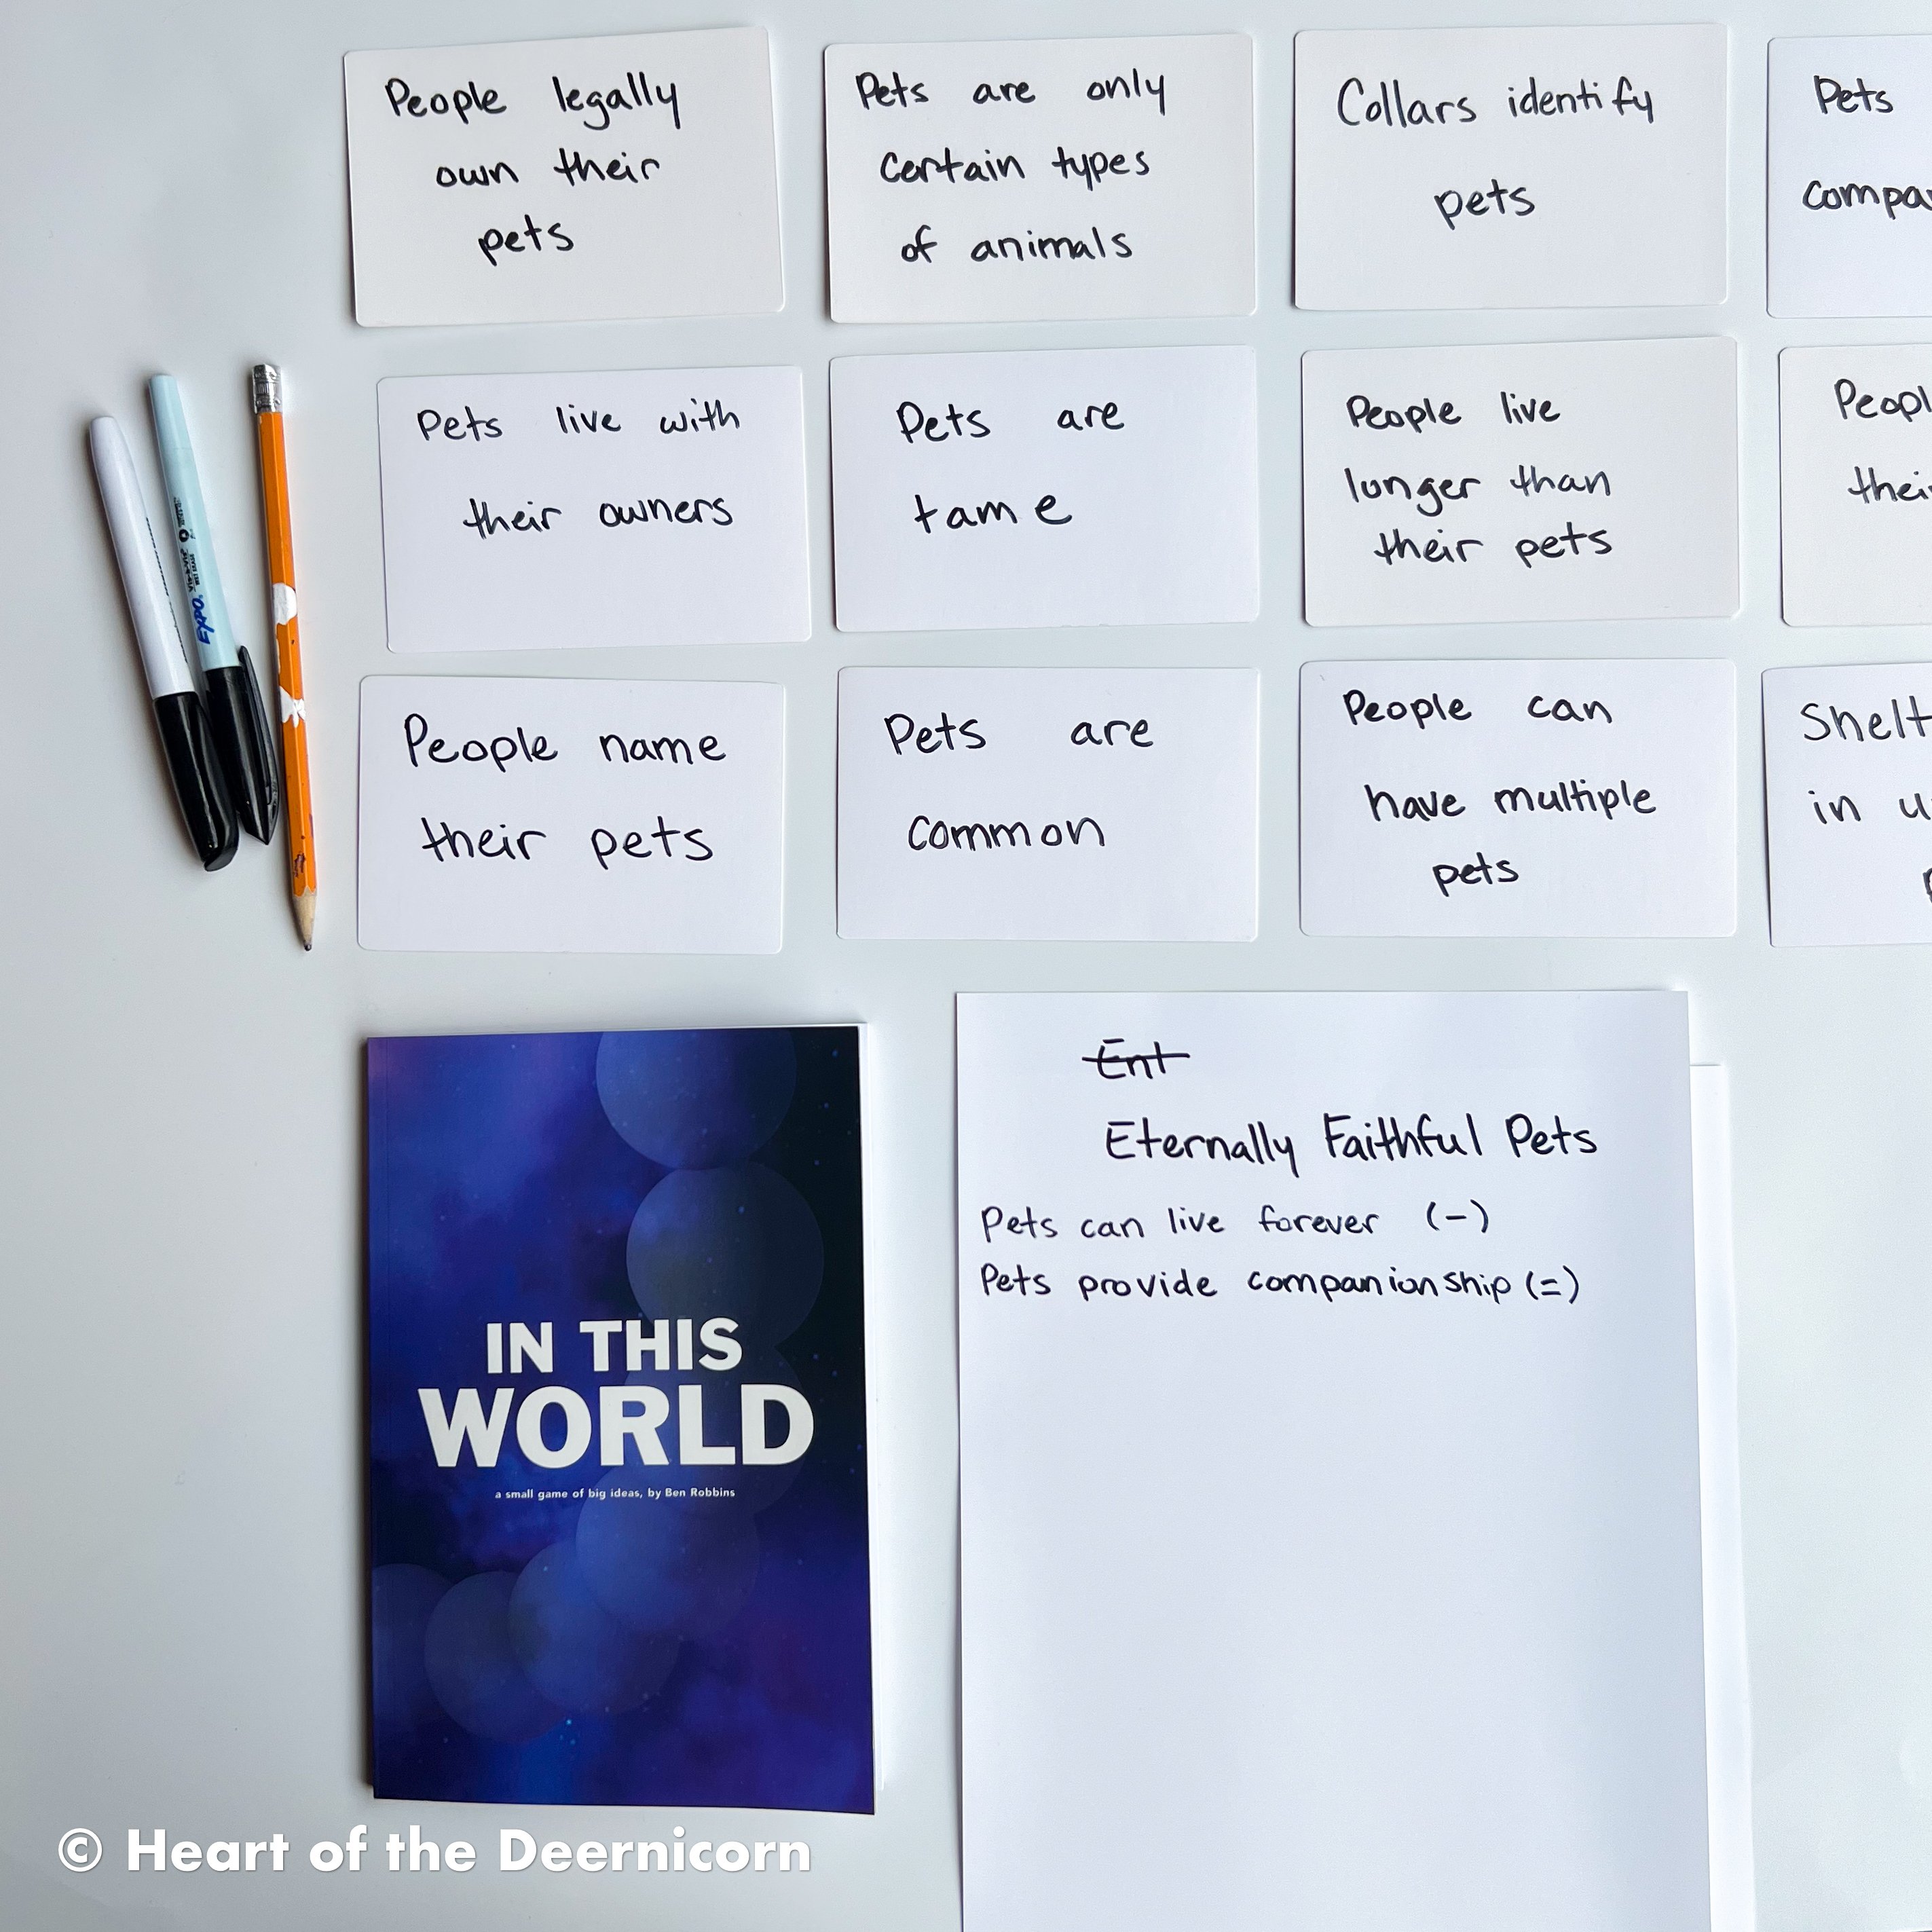 People legally
own their
pets
Pets are only
certain types
of animals
Collars identify
pets
Pets
Pets live with
their owners
Pets are
tame
People live
longer than
their pets
People name
their pets
Pets are
common
People can
have multiple
pets
in
EXPO
IN THIS
WORLD
a small game of big ideas, by Ben Robbins
Ent
Eternally Faithful Pets
Pets can live forever (-)
Pets provide companionship (=)
© Heart of the Deernicorn